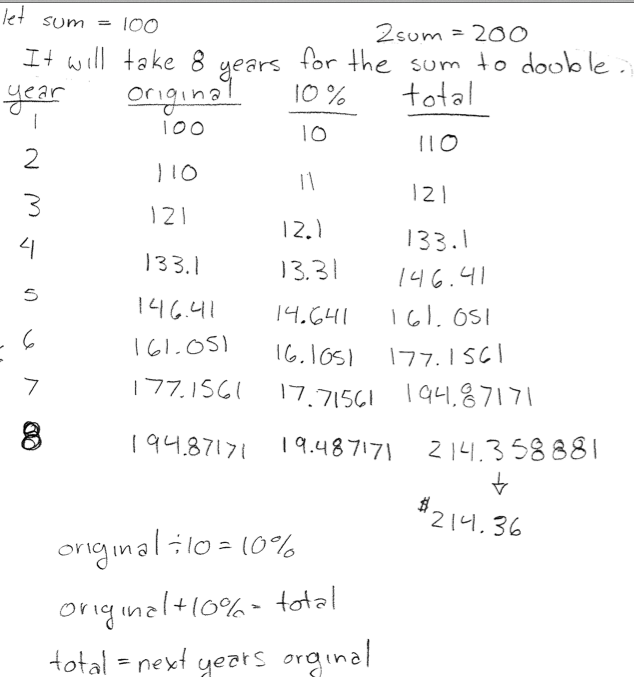 let sum = 100
2sum = 200
It will take 8 years for the sum to double.
year original 10% total
1 100 10 110
2 110 11 121
3 121 12.1 133.1
4 133.1 13.31 146.41
5 146.41 14.641 161.051
6 161.051 16.1051 177.1561
7 177.1561 17.71561 194.87171
8 194.87171 19.487171 214.358881
↓
$214.36
original ÷ 10 = 10%
original + 10% = total
total = next years orginal